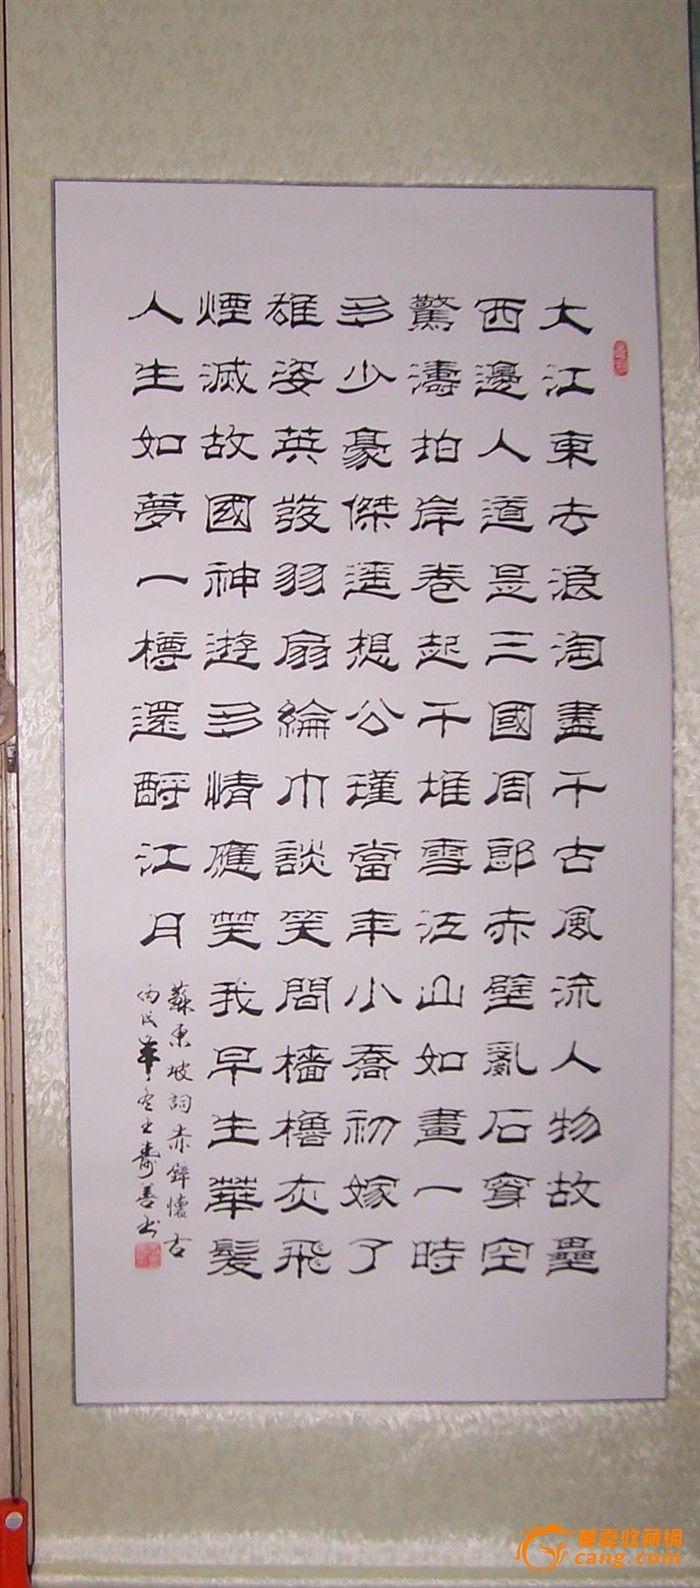 大江東去浪淘盡千古風流人物故壘
西邊人道是三國周郎赤壁亂石穿空
驚濤拍岸卷起千堆雪江山如畫一時
多少豪傑遥想公瑾當年小喬初嫁了
雄姿英發羽扇綸巾談笑間檣櫓灰飛
煙滅故國神遊多情應笑我早生華髮
人生如夢一樽還酹江月
蘇東坡詞赤壁懷古
丙戌年冬王壽善书
華夏收藏網
cang.com